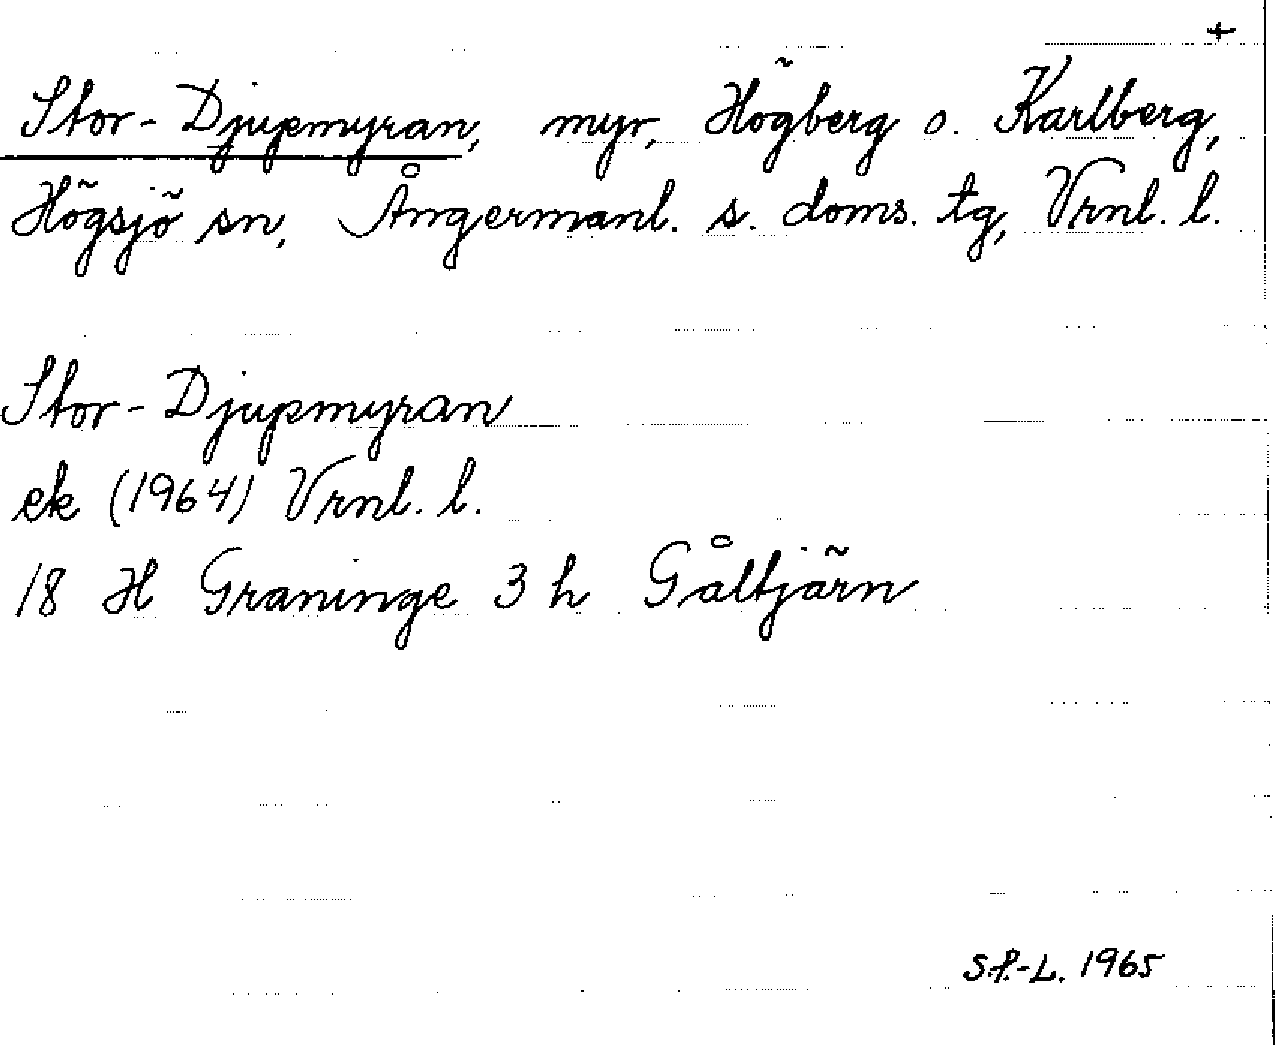 +
Stor-Djupmyran, myr, Högberg o. Karlberg,
Högsjö sn, Ångermanl. s. doms. tg, Vrnl. l.
Stor-Djupmyran
ek (1964) Vrnl. l.
18 H Graninge 3 h Gåltjärn
S.P.-L. 1965